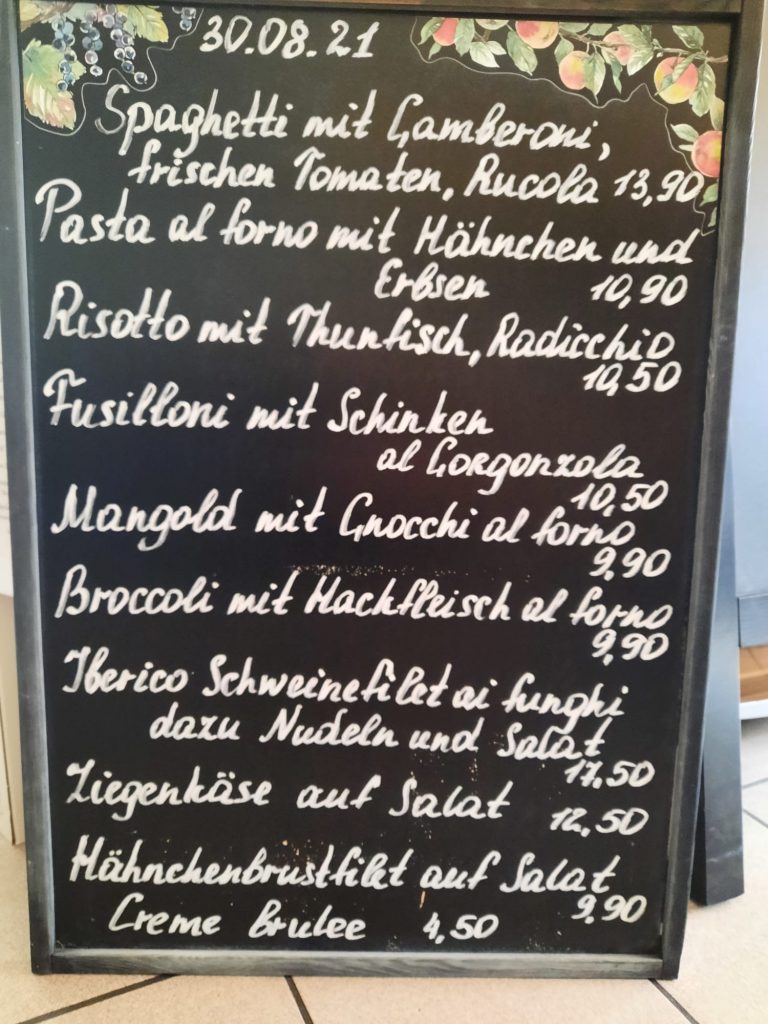 30.08.21
Spaghetti mit Gamberoni,
frischen Tomaten, Rucola 13,90
Pasta al forno mit Hähnchen und
Erbsen 10,90
Risotto mit Thunfisch, Radicchio
10,50
Fusilloni mit Schinken
al Gorgonzola
10,50
Mangold mit Gnocchi al forno
9,90
Broccoli mit Hackfleisch al forno
9,90
Iberico Schweinefilet ai funghi
dazu Nudeln und Salat
17,50
Ziegenkäse auf Salat 12,50
Hähnchenbrustfilet auf Salat
9,90
Creme Brulee 4,50